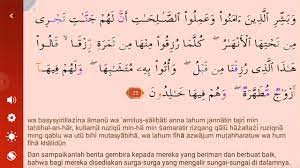 وَبَشِّرِ الَّذِينَ ءَامَنُوا وَعَمِلُوا الصَّٰلِحَٰتِ أَنَّ لَهُمْ جَنَّٰتٍ تَجْرِى
مِن تَحْتِهَا الْأَنْهَٰرُ ۖ كُلَّمَا رُزِقُوا مِنْهَا مِن ثَمَرَةٍ رِّزْقًا ۙ قَالُوا
هَٰذَا الَّذِى رُزِقْنَا مِن قَبْلُ ۖ وَأُتُوا بِهِۦ مُتَشَٰبِهًا ۖ وَلَهُمْ فِيهَآ
أَزْوَٰجٌ مُّطَهَّرَةٌ ۖ وَهُمْ فِيهَا خَٰلِدُونَ 25
wa basysyirillażīna āmanū wa 'amiluṣ-ṣāliḥāti anna lahum jannātin tajrī min
taḥtihal-an-hār, kullamā ruziqụ min-hā min ṡamaratir rizqang qālụ hāżallażī ruziqnā
ming qablu wa utụ bihī mutasyābihā, wa lahum fīhā azwājum muṭahharatuw wa hum
fīhā khālidụn
Dan sampaikanlah berita gembira kepada mereka yang beriman dan berbuat baik,
bahwa bagi mereka disediakan surga-surga yang mengalir sungai-sungai di dalamnya.